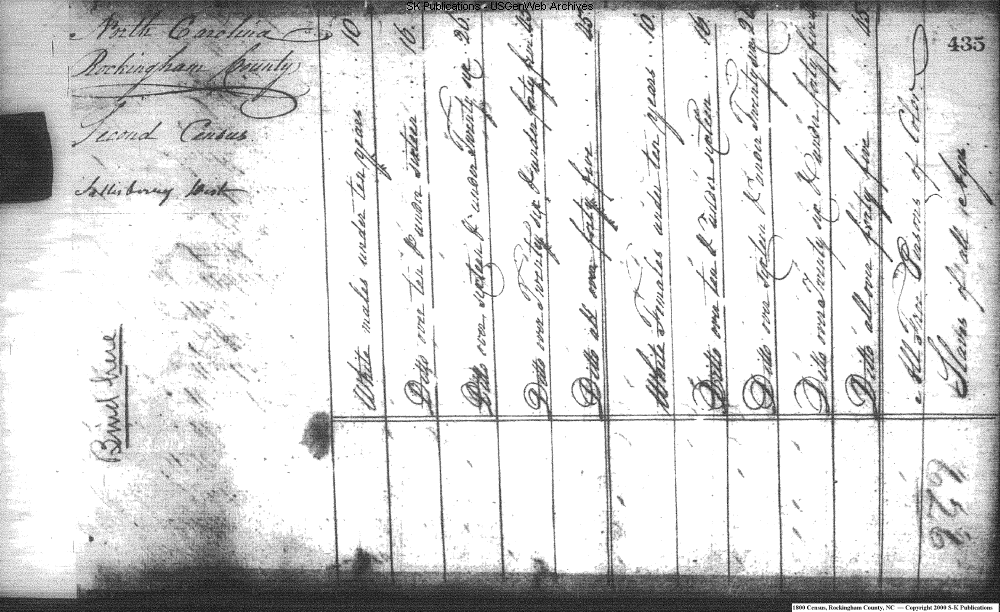 SK Publications - USGenWeb Archives
435
North Carolina
Rockingham County
Second Census
Salisbury Dist
Bind here
White males under ten years .. 10
Ditto over ten & under sixteen .. 16
Ditto over sixteen & under Twenty six .. 26
Ditto over Twenty six & under forty five 45
Ditto all over forty five .. 45
White Females under ten years .. 10
Ditto over ten & under sixteen .. 16
Ditto over sixteen & under Twenty six 26
Ditto over Twenty six & under forty five
Ditto all over forty five .... 45
All Free Persons of Color
Slaves of all ages
628
1800 Census, Rockingham County, NC — Copyright 2000 S-K Publications